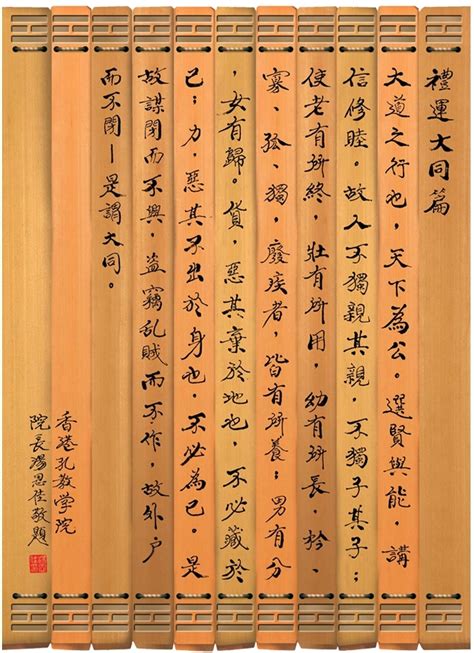 禮運大同篇
大道之行也,天下為公。選賢與能,講
信修睦。故人不獨親其親,不獨子其子;
使老有所終,壯有所用,幼有所長,矜、
寡、孤、獨,廢疾者,皆有所養;男有分
,女有歸。貨,惡其棄於地也,不必藏於
己;力,惡其不出於身也,不必為己。是
故謀閉而不興,盜竊乱賊而不作,故外户
而不閉—是謂大同。
香港孔教学院
院長湯恩佳敬題